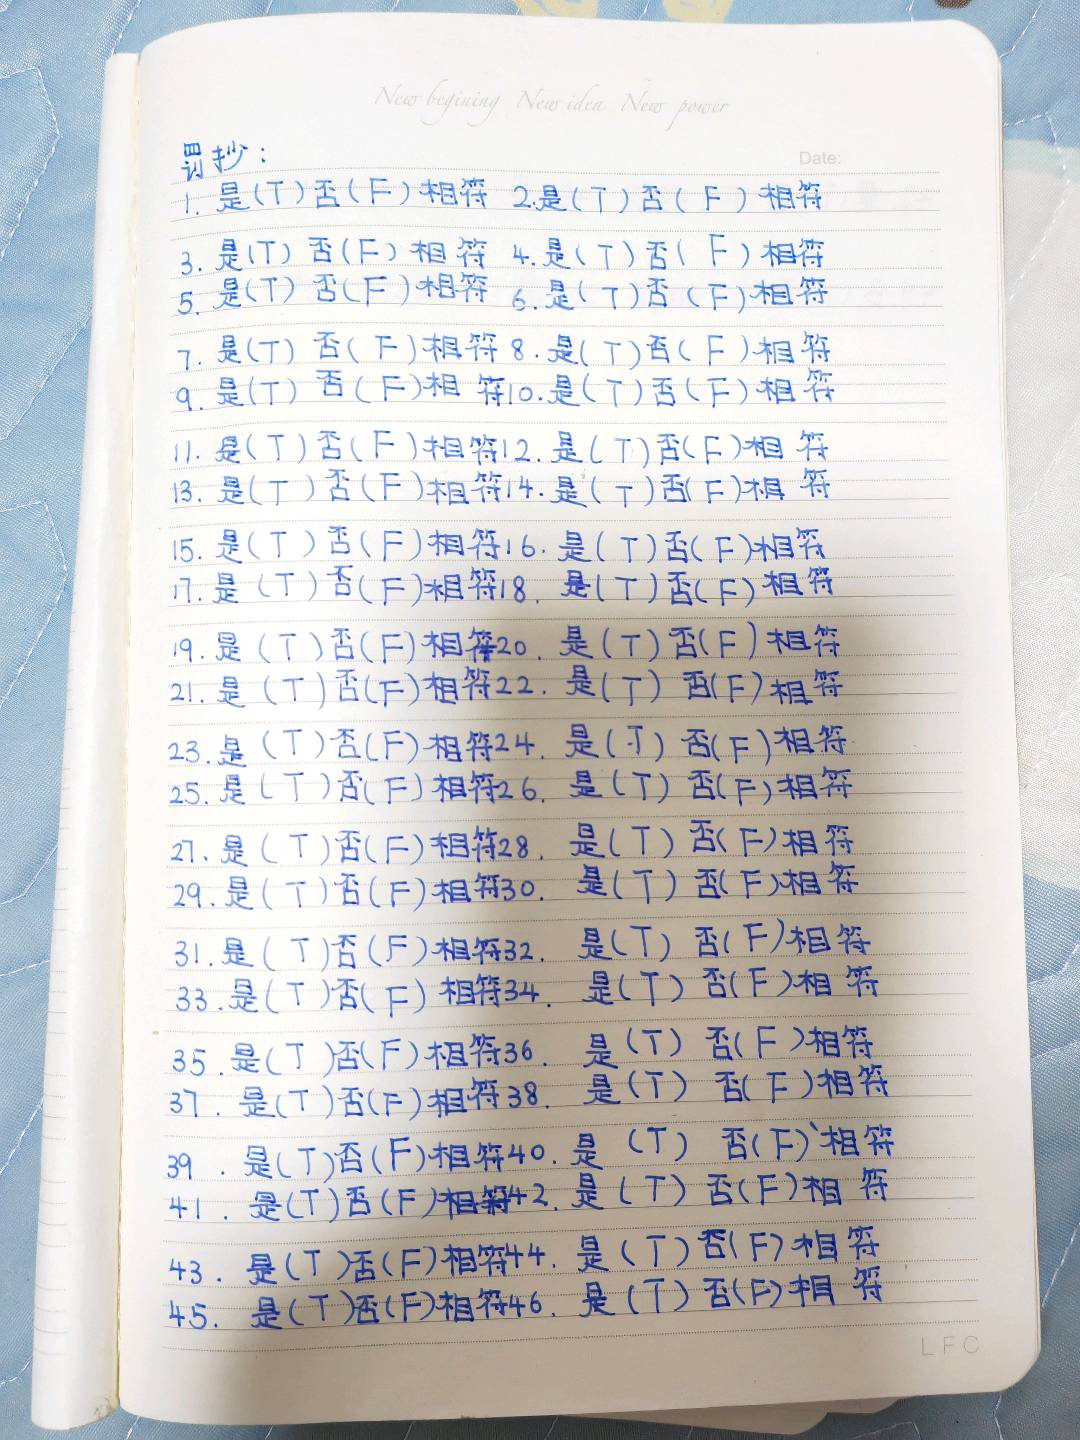 New begining New idea New power
Date:
罚抄：
1. 是(T)否(F)相符 2.是(T)否(F)相符
3. 是(T)否(F)相符 4.是(T)否(F)相符
5. 是(T)否(F)相符 6.是(T)否(F)相符
7. 是(T)否(F)相符 8.是(T)否(F)相符
9. 是(T)否(F)相符10.是(T)否(F)相符
11. 是(T)否(F)相符12.是(T)否(F)相符
13. 是(T)否(F)相符14.是(T)否(F)相符
15. 是(T)否(F)相符16.是(T)否(F)相符
17. 是(T)否(F)相符18.是(T)否(F)相符
19. 是(T)否(F)相符20.是(T)否(F)相符
21. 是(T)否(F)相符22.是(T)否(F)相符
23. 是(T)否(F)相符24.是(T)否(F)相符
25. 是(T)否(F)相符26.是(T)否(F)相符
27. 是(T)否(F)相符28.是(T)否(F)相符
29. 是(T)否(F)相符30.是(T)否(F)相符
31. 是(T)否(F)相符32.是(T)否(F)相符
33. 是(T)否(F)相符34.是(T)否(F)相符
35. 是(T)否(F)相符36.是(T)否(F)相符
37. 是(T)否(F)相符38.是(T)否(F)相符
39. 是(T)否(F)相符40.是(T)否(F)相符
41. 是(T)否(F)相符42.是(T)否(F)相符
43. 是(T)否(F)相符44.是(T)否(F)相符
45. 是(T)否(F)相符46.是(T)否(F)相符
LFC